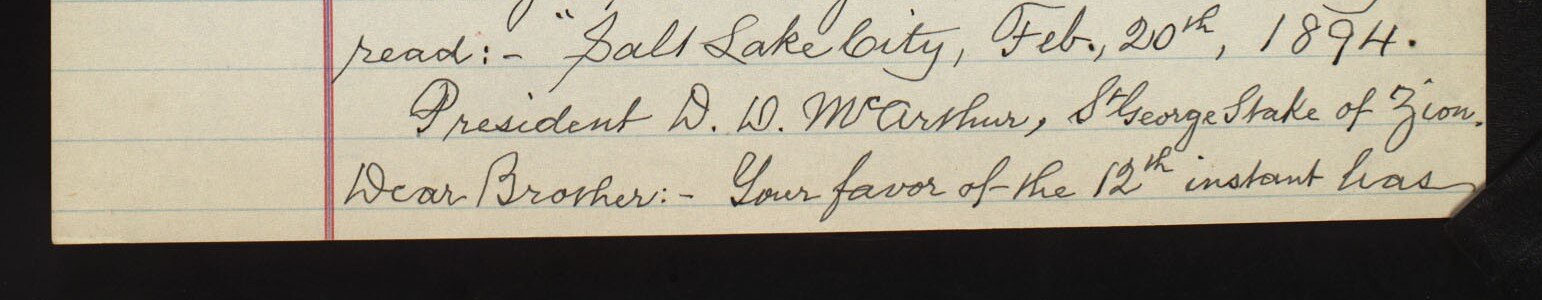 read:- "Salt Lake City, Feb., 20th, 1894.
President D. D. McArthur, St George Stake of Zion.
Dear Brother:- Your favor of the 12th instant has